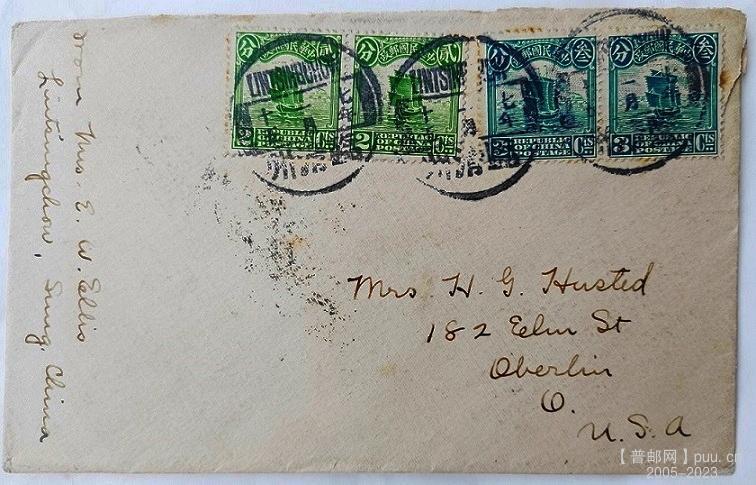 分 中華民國郵政 貳
2 REPUBLIC OF CHINA POSTAGE Cts
分 中華民國郵政 貳
2 REPUBLIC OF CHINA POSTAGE Cts
分 中華民國郵政 叁
3 REPUBLIC OF CHINA POSTAGE Cts
分 中華民國郵政 叁
3 REPUBLIC OF CHINA POSTAGE Cts
LINTSINGCHOW
LINTSIN
From Mrs. E. W. Ellis
Lintsingchow,
China
Mrs H. G. Husted
182 Eelm St
Oberlin
O.
U.S.A
【普邮网】puu.cn
2005-2023